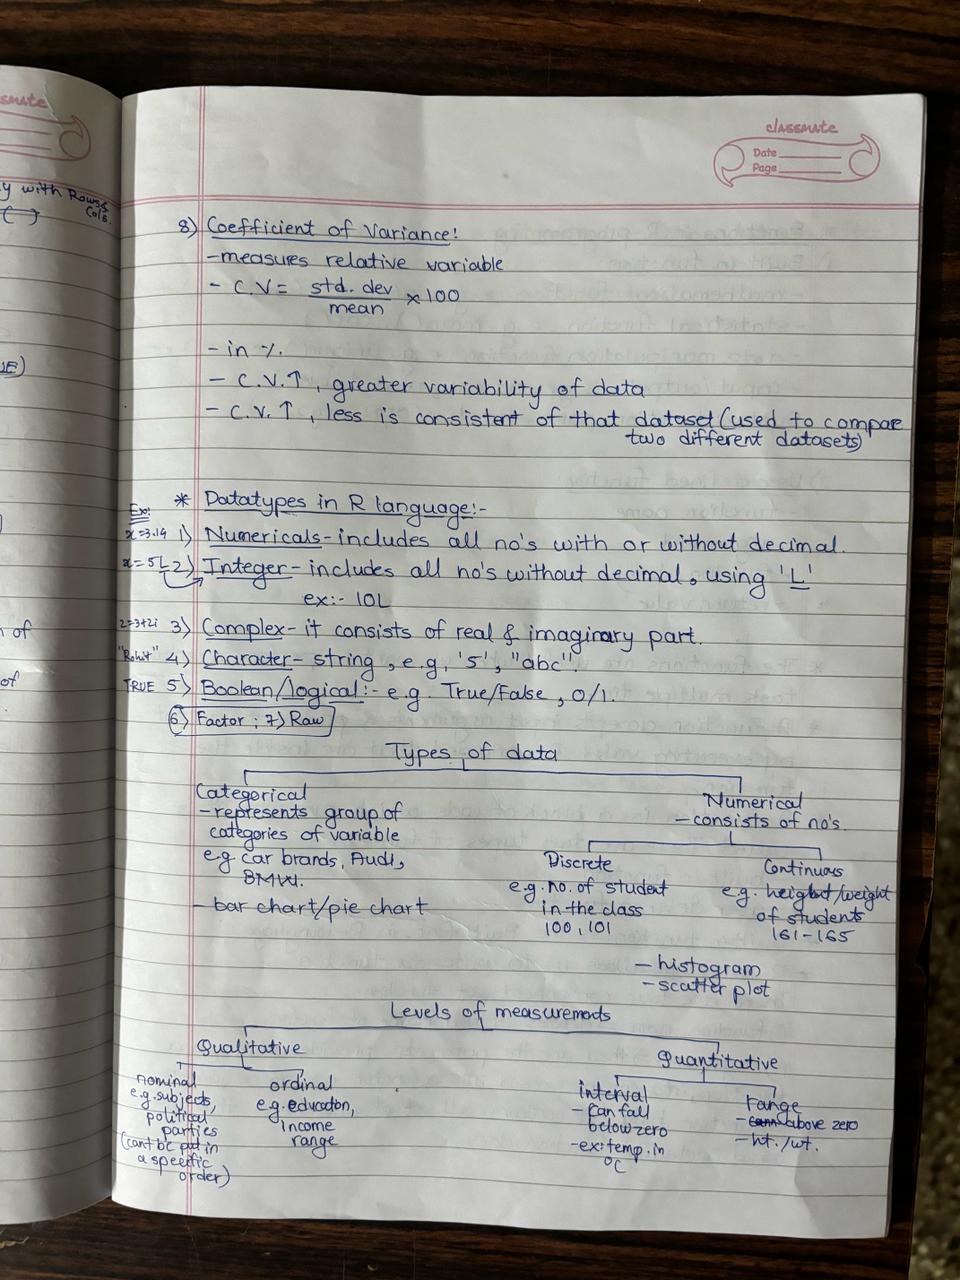 ssmate
y with Rows &
Cols.
UE)
n of
of
classmate
Date
Page
8) Coefficient of Variance!
-measures relative variable
- C.V = std. dev / mean × 100
- in %.
- C.V.↑, greater variability of data
- C.V.↑, less is consistent of that dataset (used to compare
two different datasets)
* Datatypes in R language:-
Ex:
x=3.14 1) Numericals - includes all no's with or without decimal.
x=5L 2) Integer - includes all no's without decimal, using 'L'
ex:- 10L
z=3+2i 3) Complex - it consists of real & imaginary part.
"Rohit" 4) Character - string, e.g, '5', "abc".
TRUE 5) Boolean/logical:- e.g. True/False, 0/1.
6) Factor ; 7) Raw
Types of data
Categorical
- represents group of
categories of variable
e.g car brands, Audi,
BMW.
- bar chart/pie chart
Numerical
- consists of no's.
Discrete
e.g. no. of student
in the class
100, 101
Continuous
e.g. height/weight
of students
161-165
- histogram
- scatter plot
Levels of measurements
Qualitative
nominal
e.g. subjects,
political
parties
(cant be put in
a specific
order)
ordinal
e.g. education,
income
range
Quantitative
interval
- can fall
below zero
- ex: temp. in
°C
range
- above zero
- ht./wt.